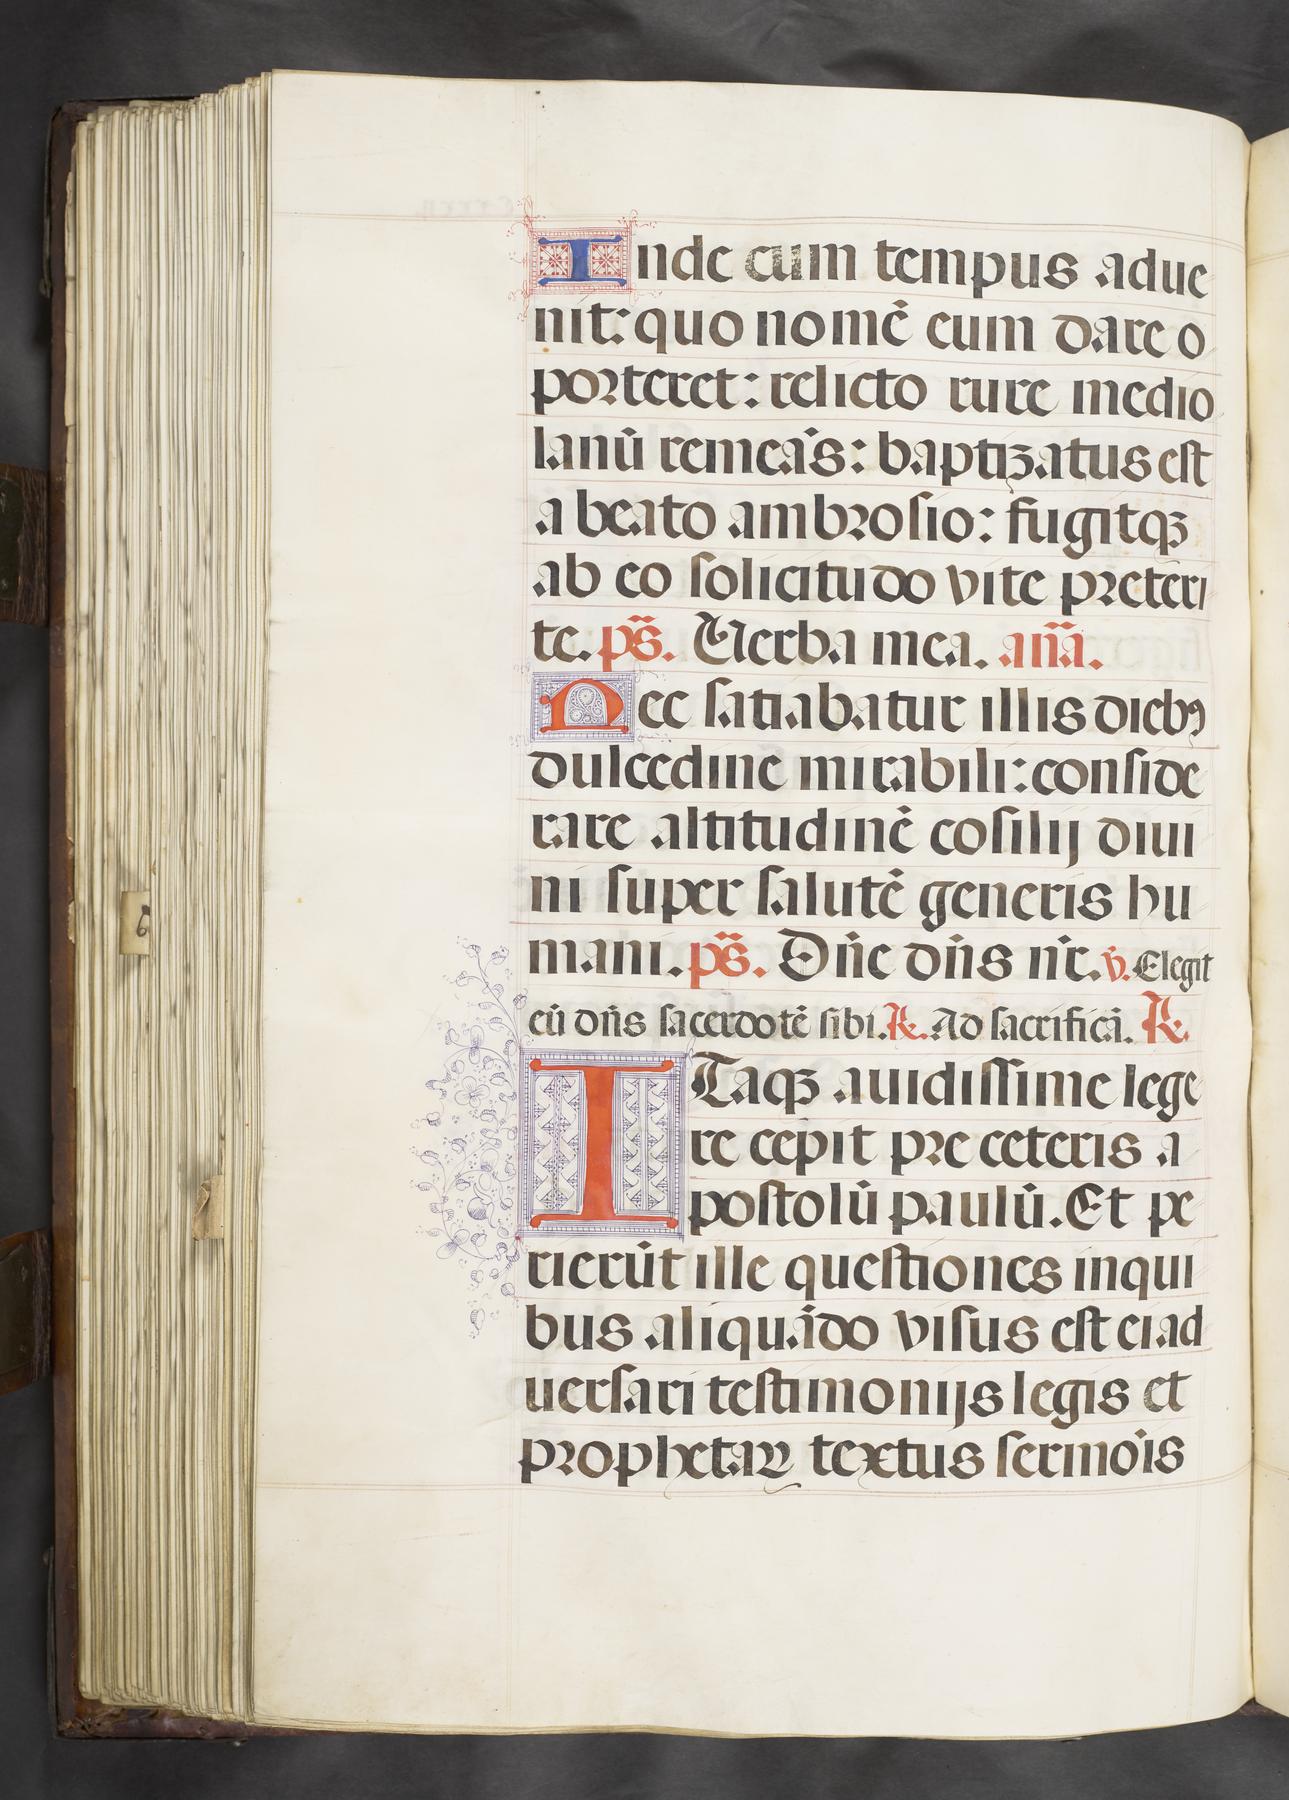 Inde cum tempus adue
nit: quo nomē eum dare o
porteret: relicto rure medio
lanū remeās: baptizatus est
a beato ambrosio: fugitqꝫ
ab eo solicitudo vite preteri
te. pš. Verba mea. añā.
Nec satiabatur illis diebꝰ
dulcedine mirabili: conside
rare altitudinē cōsilij diui
ni super salutē generis hu
mani. pš. Dñe dñs nr̄. ℣. Elegit
eū dñs sacerdotē sibi. ℟. Ad sacrificā. ℟.
ITaqꝫ auidissime lege
re cepit pre ceteris a
postolū paulū. Et pe
rierūt ille questiones in qui
bus aliquādo visus est ei ad
uersari testimonijs legis et
prophetaꝝ textus sermōis
6